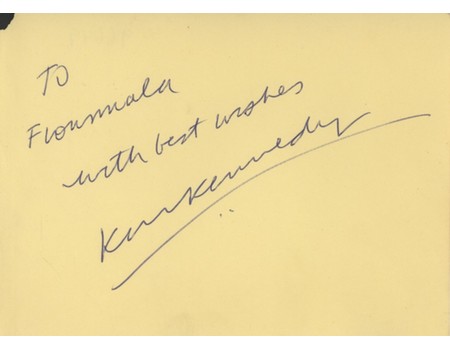 To
with best wishes
Ken Kennedy